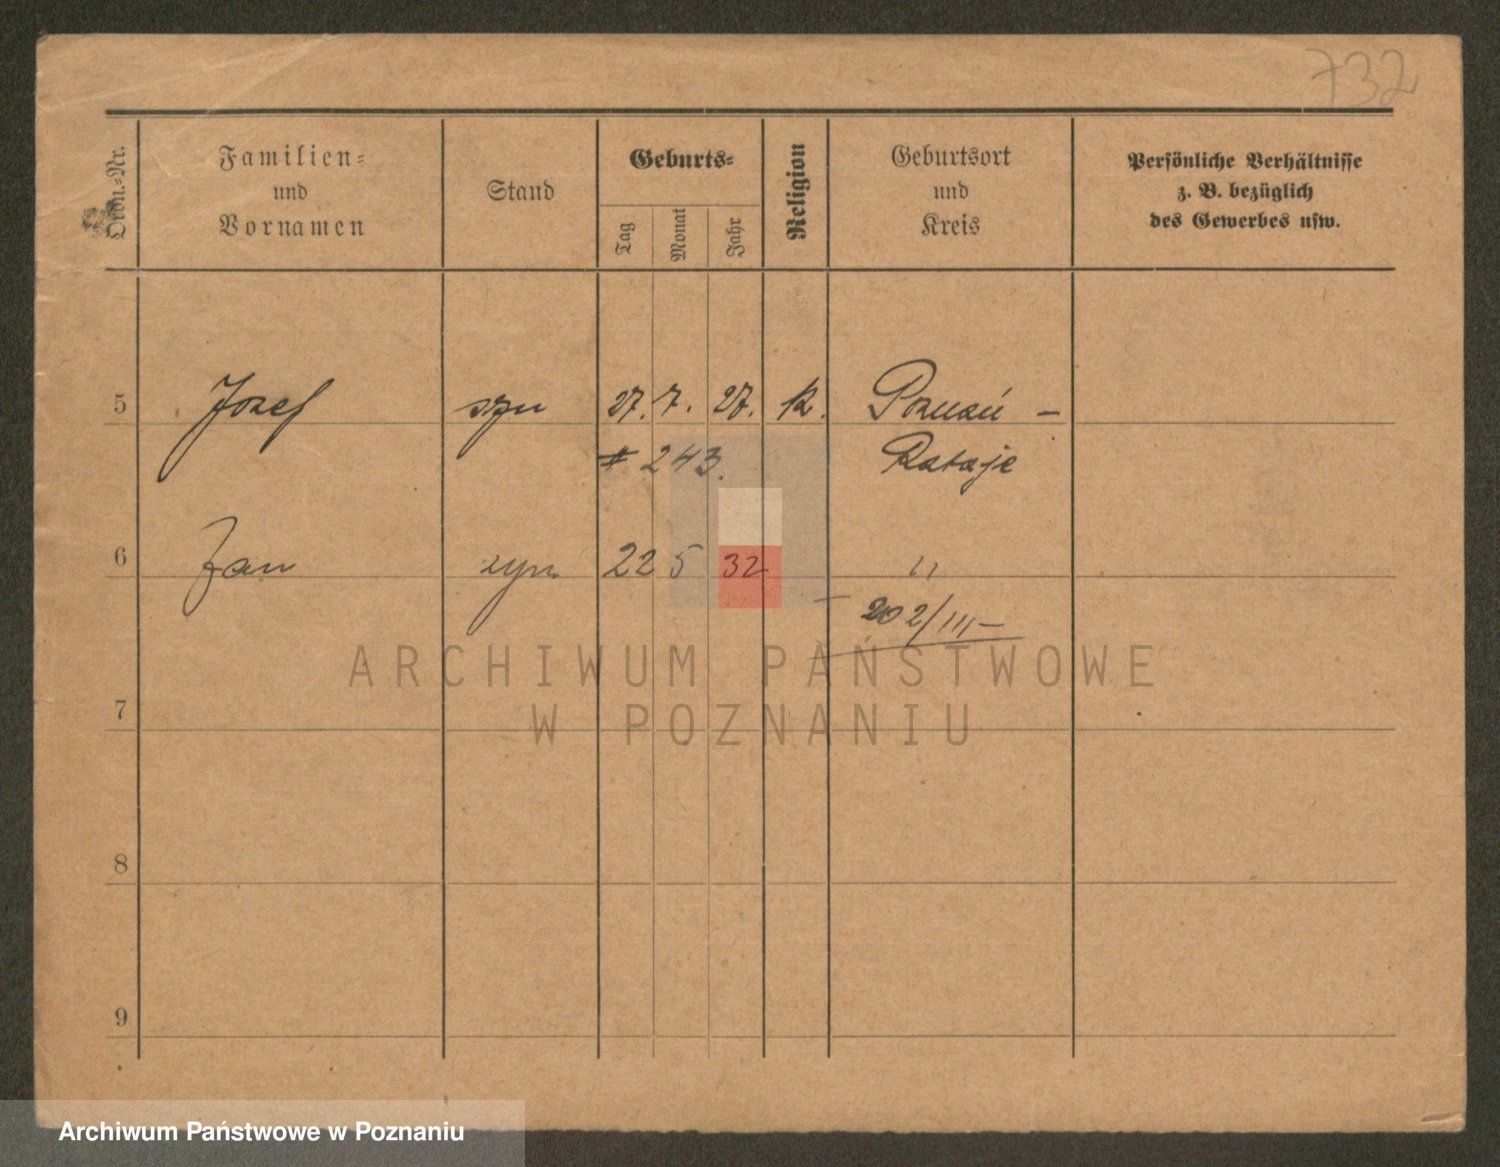 732
Ordn.-Nr.
Familien-
und
Vornamen
Stand
Geburts-
Tag
Monat
Jahr
Religion
Geburtsort
und
Kreis
Persönliche Verhältnisse
z. B. bezüglich
des Gewerbes usw.
5 Józef syn 27. 7. 27. k. Poznań -
# 243. Rataje
6 Jan syn 22 5 32 "
202/III-
ARCHIWUM PAŃSTWOWE
W POZNANIU
7
8
9
Archiwum Państwowe w Poznaniu